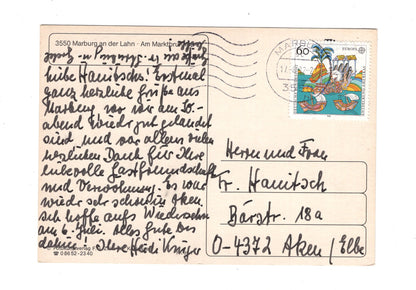 3550 Marburg an der Lahn · Am Marktplatz
Liebe Hanitschs! Erstmal
ganz herzliche Grüße aus
Marburg, wo wir am So.-
abend wieder gut gelandet
sind und vor allem vielen
herzlichen Dank für Ihre
liebevolle Gastfreundschaft
und Verwöhnung. Es war
wieder sehr schön in Aken.
Ich hoffe aufs Wiedersehn
am 6. Juli. Alles Gute bis
dahin! Ihre Heidi Krüger
0 66 52 - 23 40
MARBURG
60
EUROPA
Herrn und Frau
Fr. Hanitsch
Bärstr. 18a
O-4372 Aken/Elbe